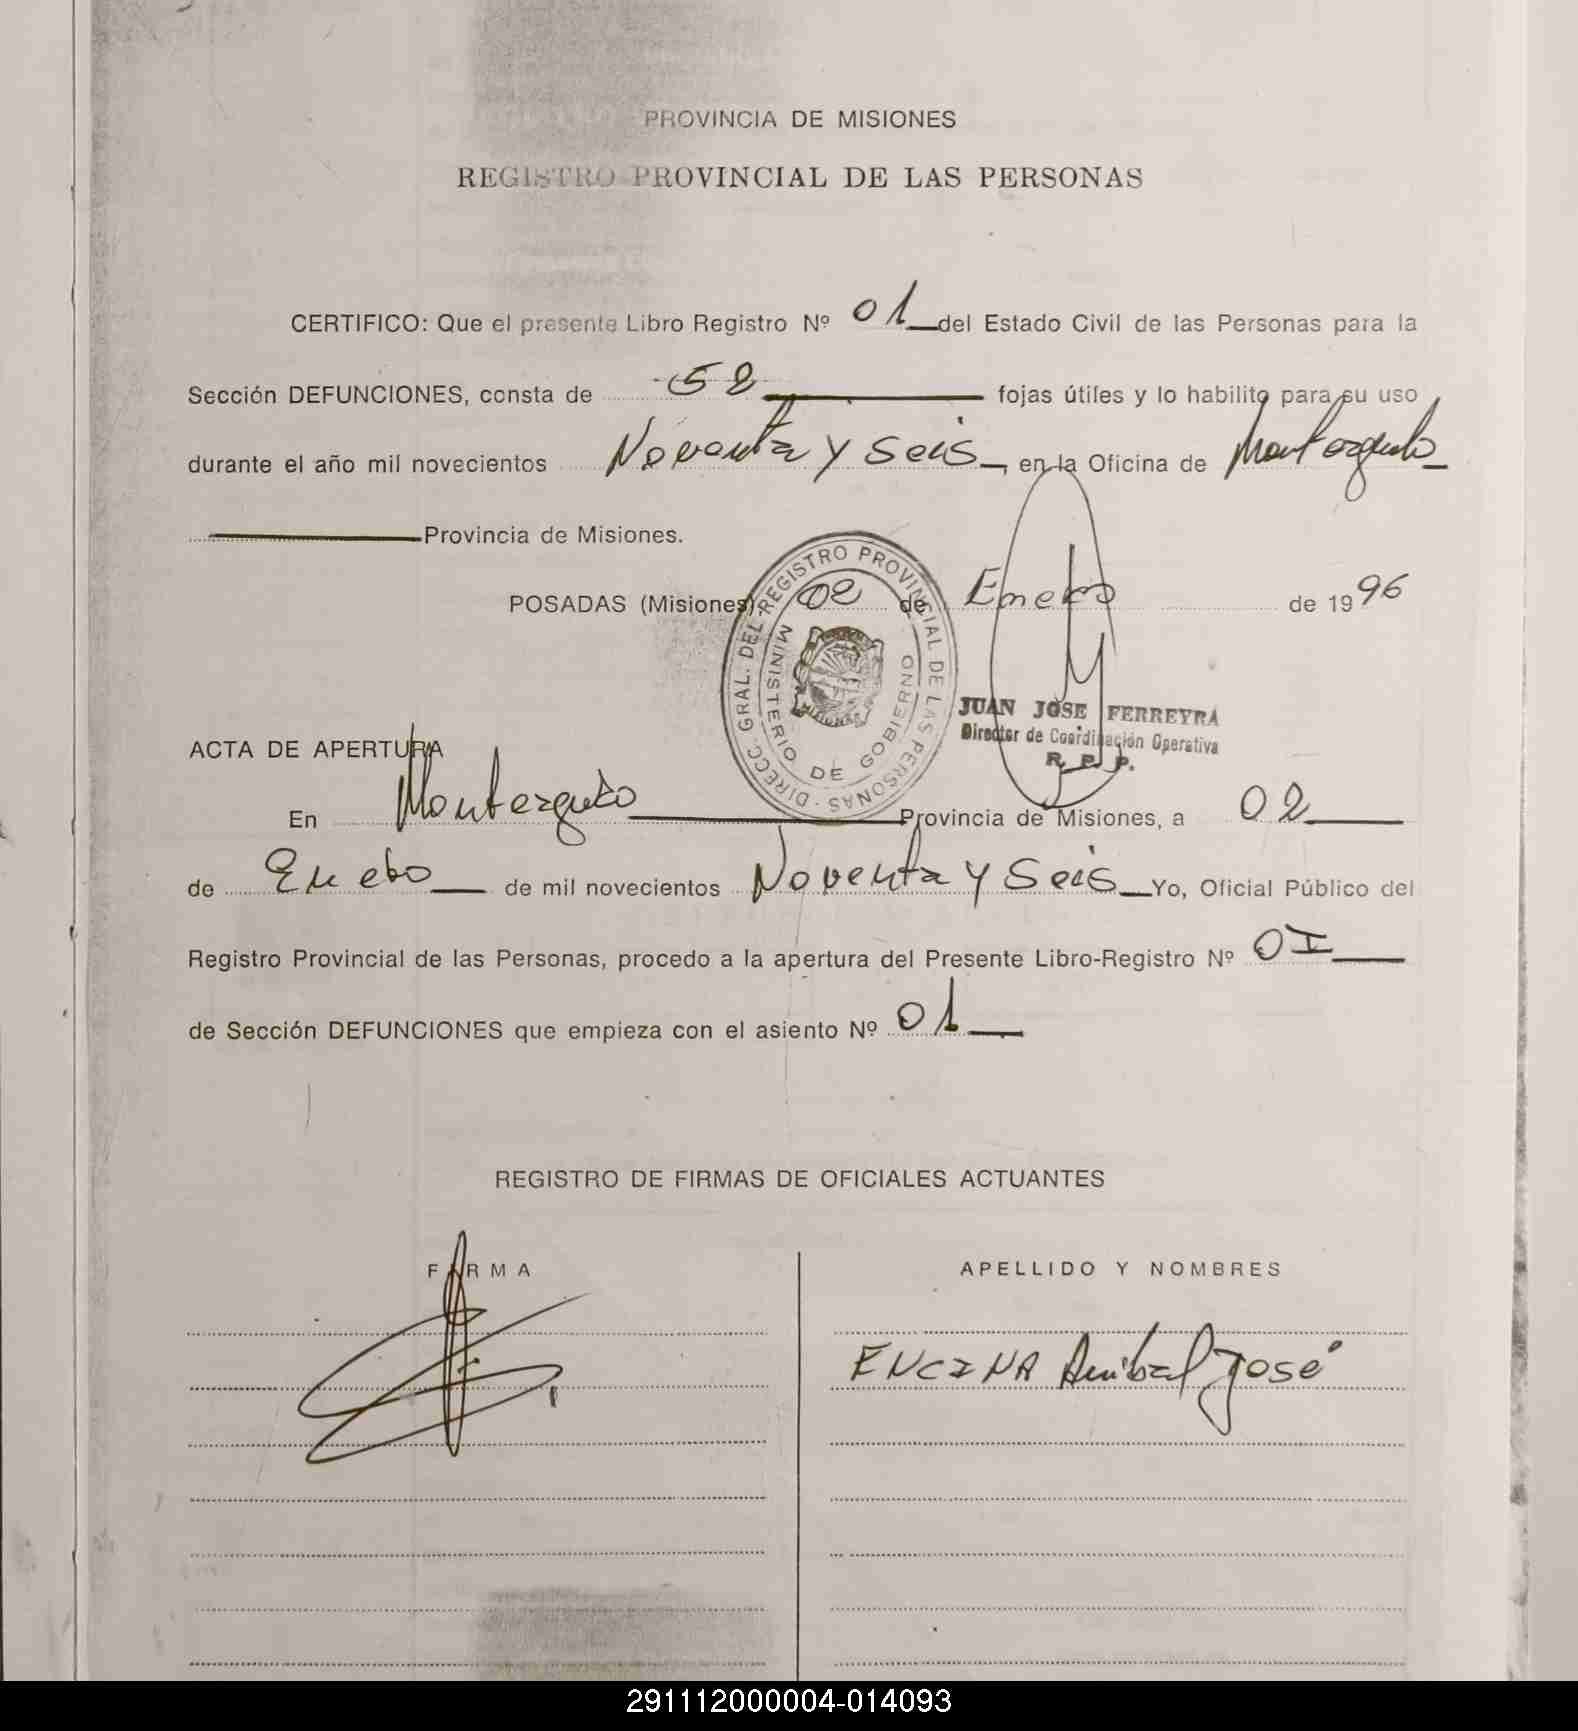 PROVINCIA DE MISIONES
REGISTRO PROVINCIAL DE LAS PERSONAS
CERTIFICO: Que el presente Libro Registro Nº 01 del Estado Civil de las Personas para la
Sección DEFUNCIONES, consta de 52 fojas útiles y lo habilito para su uso
durante el año mil novecientos Noventa y seis, en la Oficina de
Provincia de Misiones.
POSADAS (Misiones) 02 de Enero de 1996
DIRECC. GRAL. DEL REGISTRO PROVINCIAL DE LAS PERSONAS
MINISTERIO DE GOBIERNO
MISIONES
JUAN JOSE FERREYRA
Director de Coordinación Operativa
R. P. P.
ACTA DE APERTURA
En Provincia de Misiones, a 02
de Enero de mil novecientos Noventa y Seis Yo, Oficial Público del
Registro Provincial de las Personas, procedo a la apertura del Presente Libro-Registro Nº 0I
de Sección DEFUNCIONES que empieza con el asiento Nº 01
REGISTRO DE FIRMAS DE OFICIALES ACTUANTES
FIRMA
APELLIDO Y NOMBRES
ENCINA Anibal José
291112000004-014093